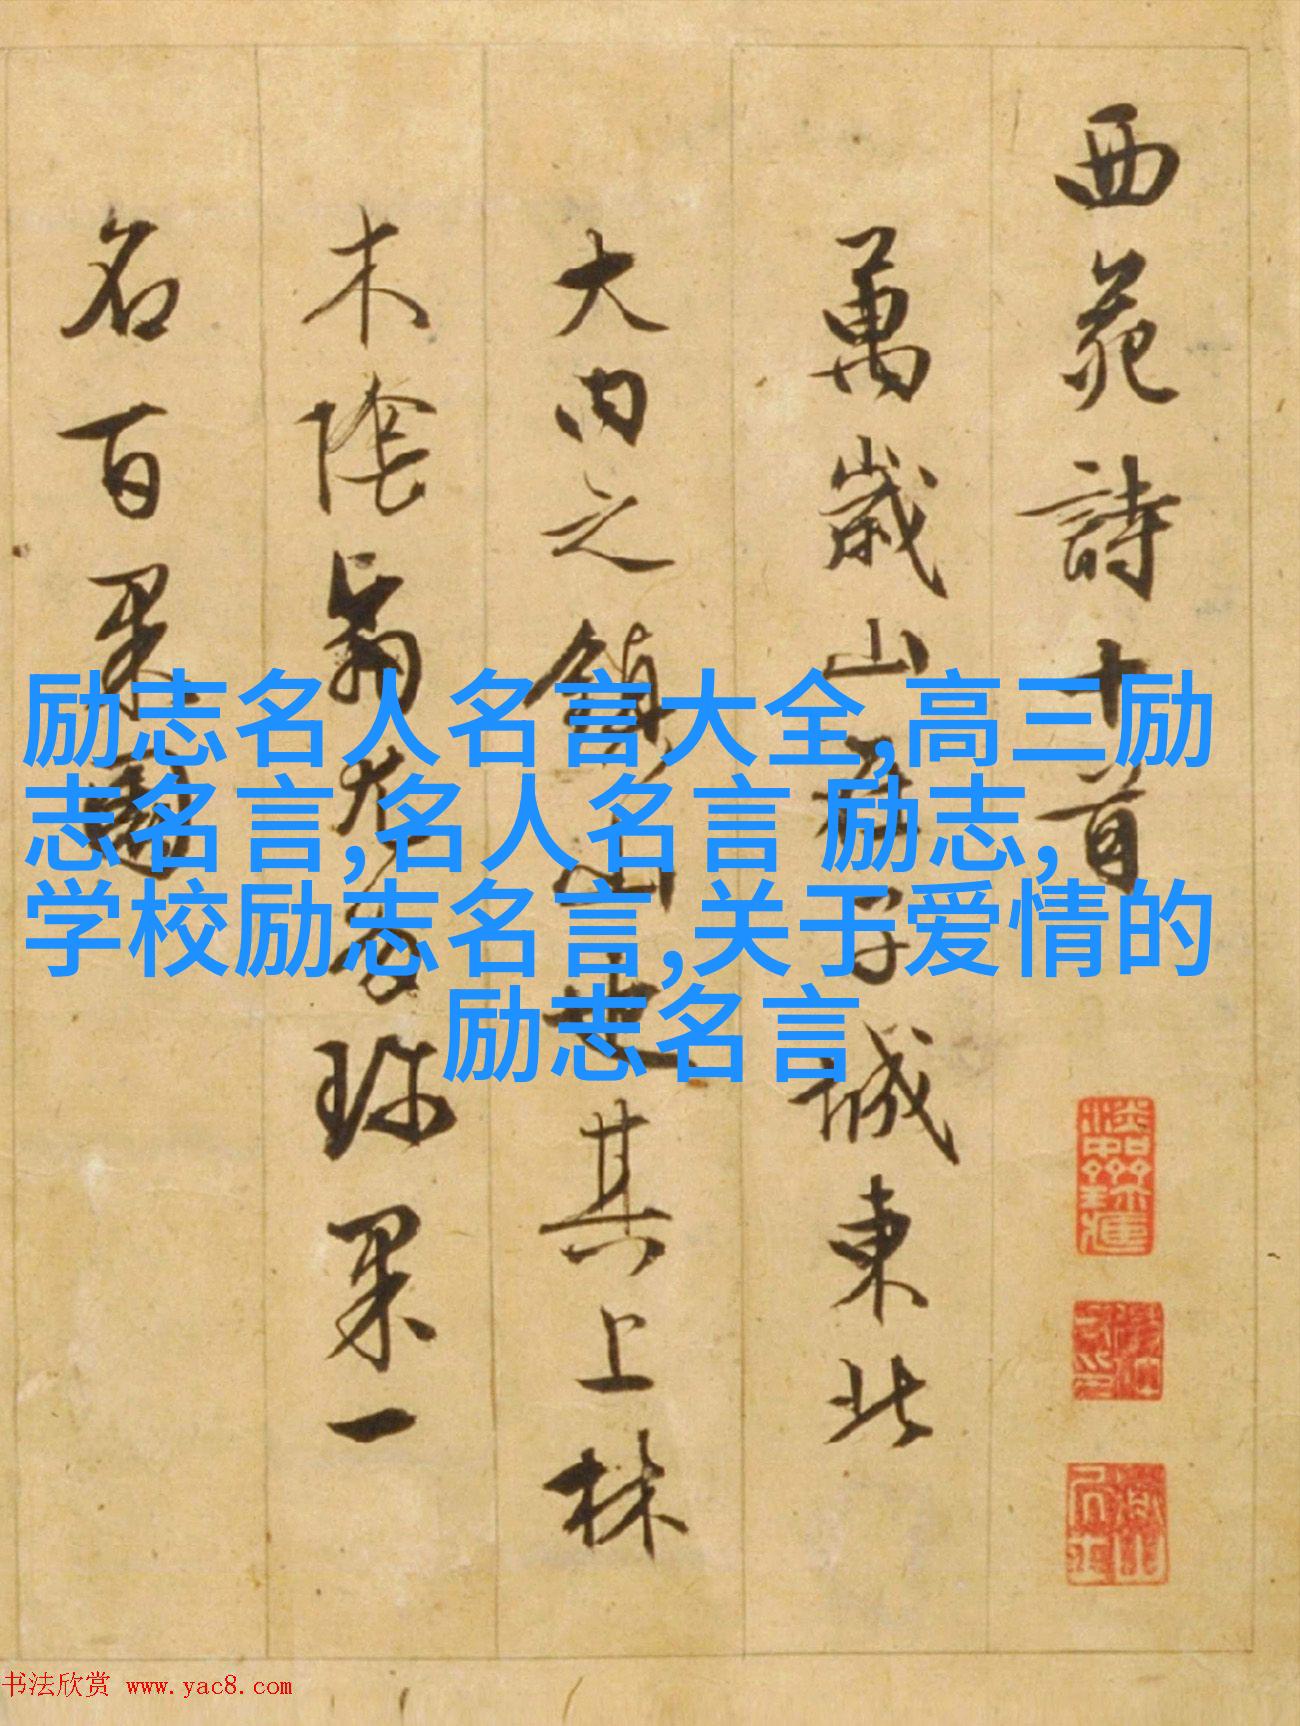 西苑詩十首
萬歲山在子城東北
大內之鎮山也其上林
木陰翳尤多珍果一
名百果園
励志名人名言大全,高三励
志名言,名人名言 励志,
学校励志名言,关于爱情的
励志名言
书法欣赏 www.yac8.com